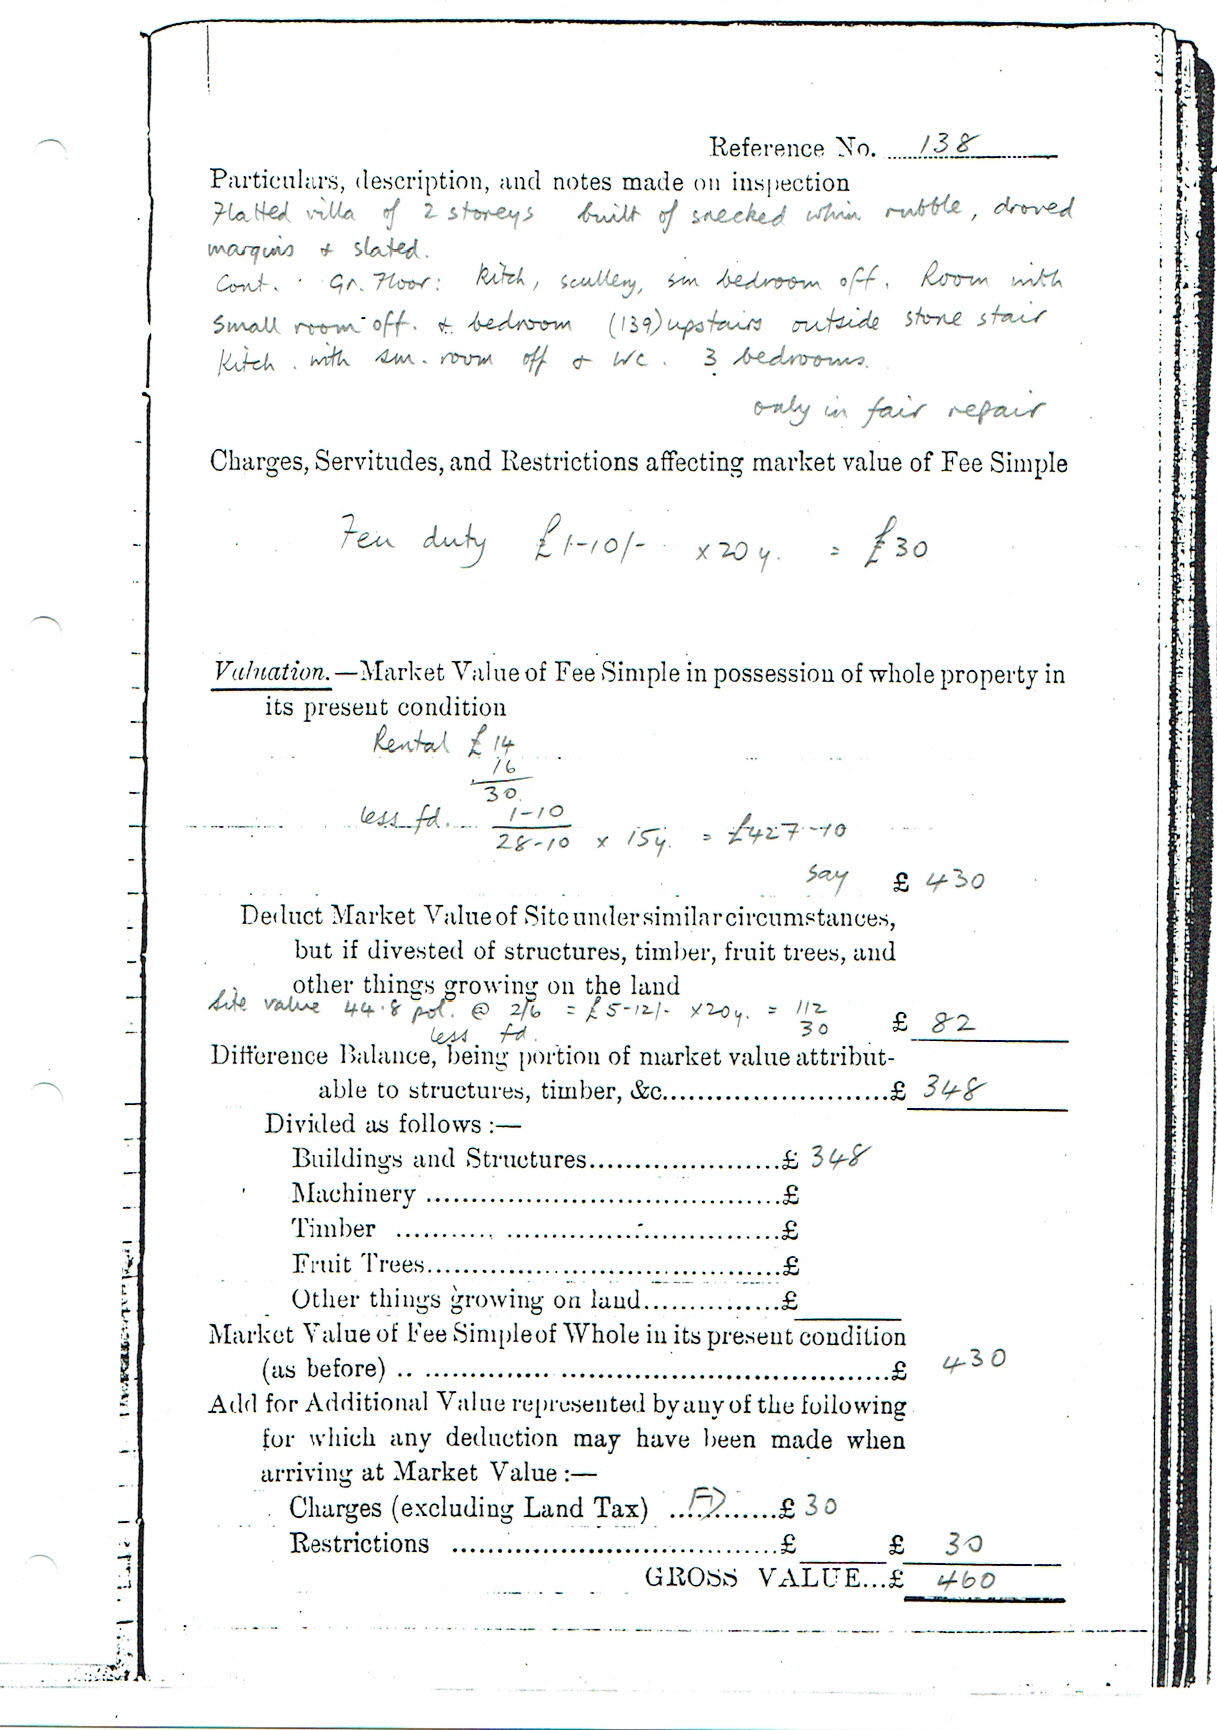 Reference No. 138
Particulars, description, and notes made on inspection
Flatted villa of 2 storeys built of snecked whin rubble, droved
margins & slated.
Cont. Gr. Floor: Kitch, scullery, sm bedroom off. Room with
small room off. & bedroom (139) upstairs outside stone stair
Kitch. with sm. room off & WC. 3 bedrooms.
only in fair repair
Charges, Servitudes, and Restrictions affecting market value of Fee Simple
Feu duty £1-10/- x 20 y. = £30
Valuation.—Market Value of Fee Simple in possession of whole property in
its present condition
Rental £14
16
30
less fd. 1-10
28-10 x 15y. = £427-10
say £ 430
Deduct Market Value of Site under similar circumstances,
but if divested of structures, timber, fruit trees, and
other things growing on the land
Site value 44.8 pol. @ 2/6 = £5-12/- x 20y. = 112
less fd. 30 £ 82
Difference Balance, being portion of market value attribut-
able to structures, timber, &c.........................£ 348
Divided as follows :—
Buildings and Structures......................£ 348
Machinery ........................................£
Timber ........... ...............................£
Fruit Trees.........................................£
Other things growing on land................£
Market Value of Fee Simple of Whole in its present condition
(as before) .. .............. .....................................£ 430
Add for Additional Value represented by any of the following
for which any deduction may have been made when
arriving at Market Value :—
Charges (excluding Land Tax) ...FD.......£ 30
Restrictions ......................................£ £ 30
GROSS VALUE...£ 460